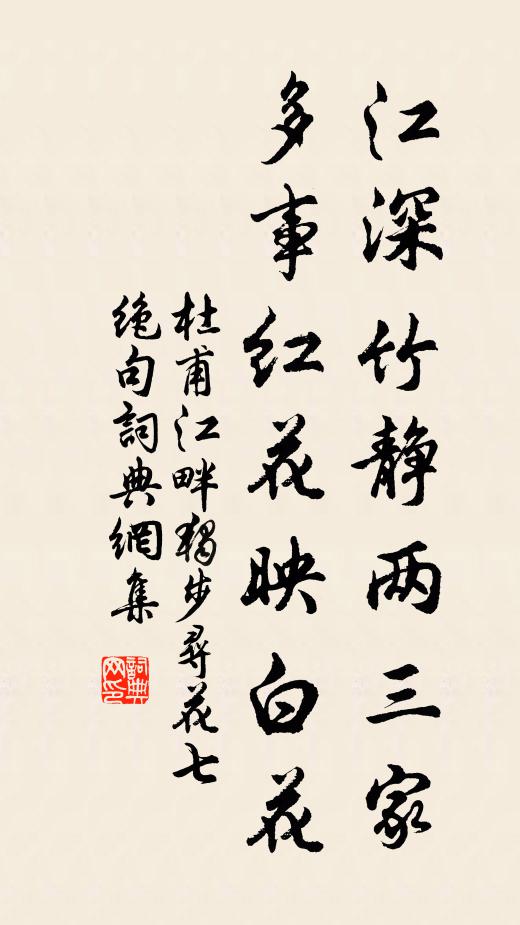 江深竹静两三家
多事红花映白花
杜甫江畔獨步尋花七
绝句詞典網集
詞典网印